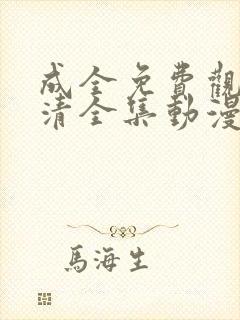 成全免費觀
清全集動漫
馬海生